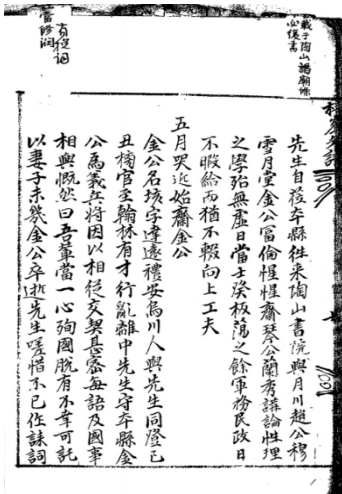 載于陶山謁廟條
先生自莅本縣往來陶山書院與月川趙公穆
雪月堂金公富倫惺惺齋琴公蘭秀講論性理
之學殆無虛日當壬癸板蕩之餘軍務民政日
不暇給而猶不輟向上工夫
五月哭近始齋金公
金公名垓字達遠禮安烏川人與先生同登己
丑官至翰林有才行亂離中先生守本縣金
公爲義兵將因以相從交契甚密每語及國事
相與慨然曰吾輩當一心殉國脫有不幸可託
以妻子未幾金公卒逝先生嗟惜不已作誄詞